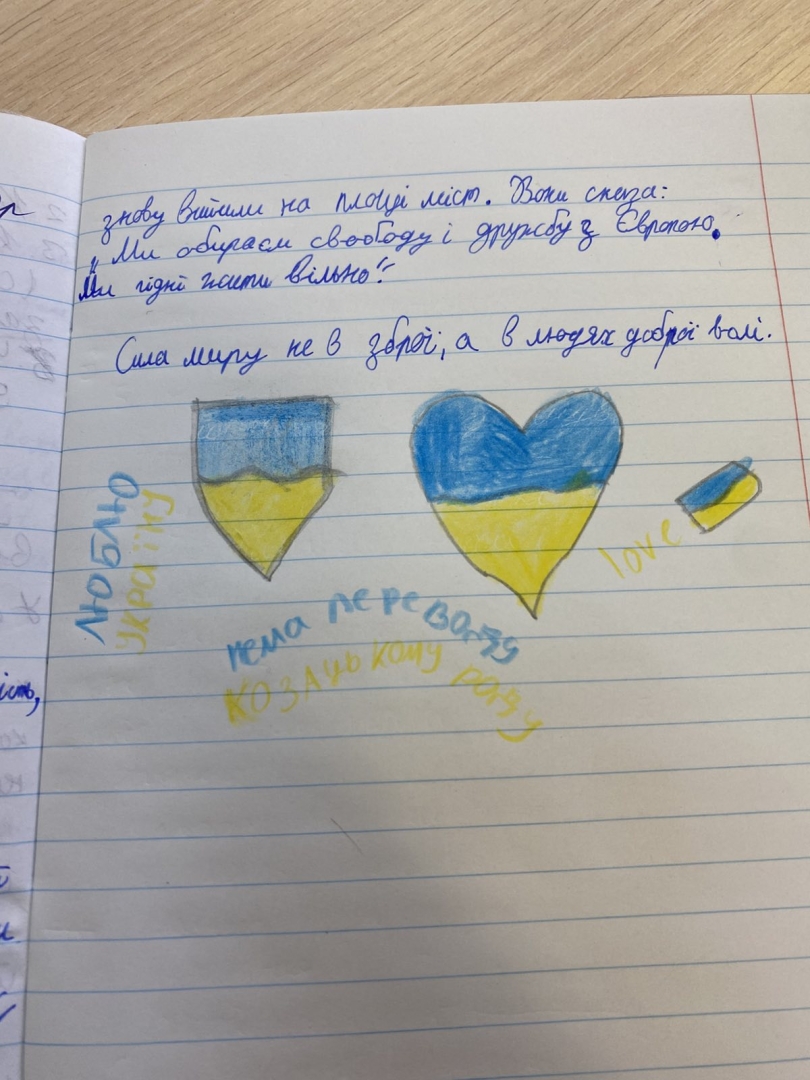 знову вийшли на площі міст. Вони сказа:
„Ми обираєм свободу і дружбу з Європою.
Ми гідні жити вільно!"
Сила миру не в зброї, а в людях доброї волі.
ЛЮБЛЮ
УКРАЇНУ
love
нема переводу
козацькому роду
ість,